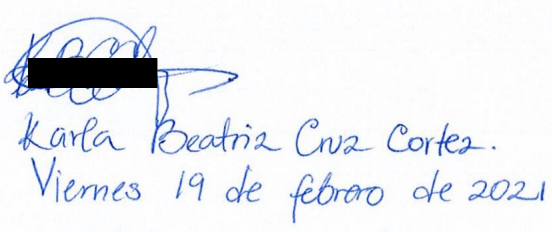 Karla Beatriz Cruz Cortez.
Viernes 19 de febrero de 2021